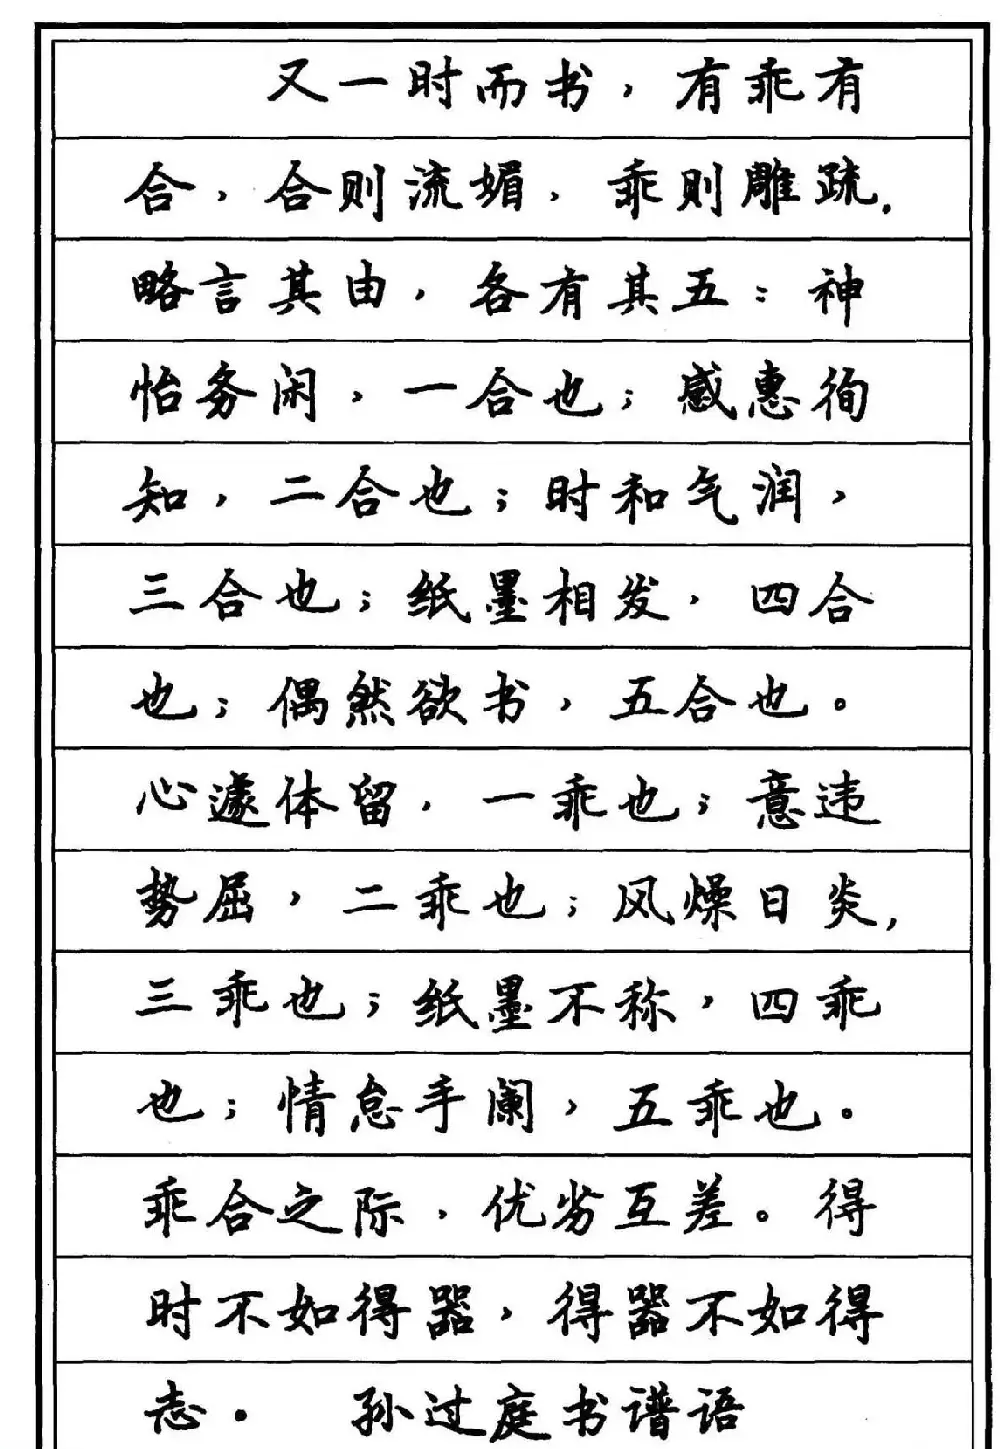 又一时而书，有乖有
合，合则流媚，乖则雕疏，
略言其由，各有其五：神
怡务闲，一合也；感惠徇
知，二合也；时和气润，
三合也；纸墨相发，四合
也；偶然欲书，五合也。
心遽体留，一乖也；意违
势屈，二乖也；风燥日炎，
三乖也；纸墨不称，四乖
也；情怠手阑，五乖也。
乖合之际，优劣互差。得
时不如得器，得器不如得
志。 孙过庭书谱语